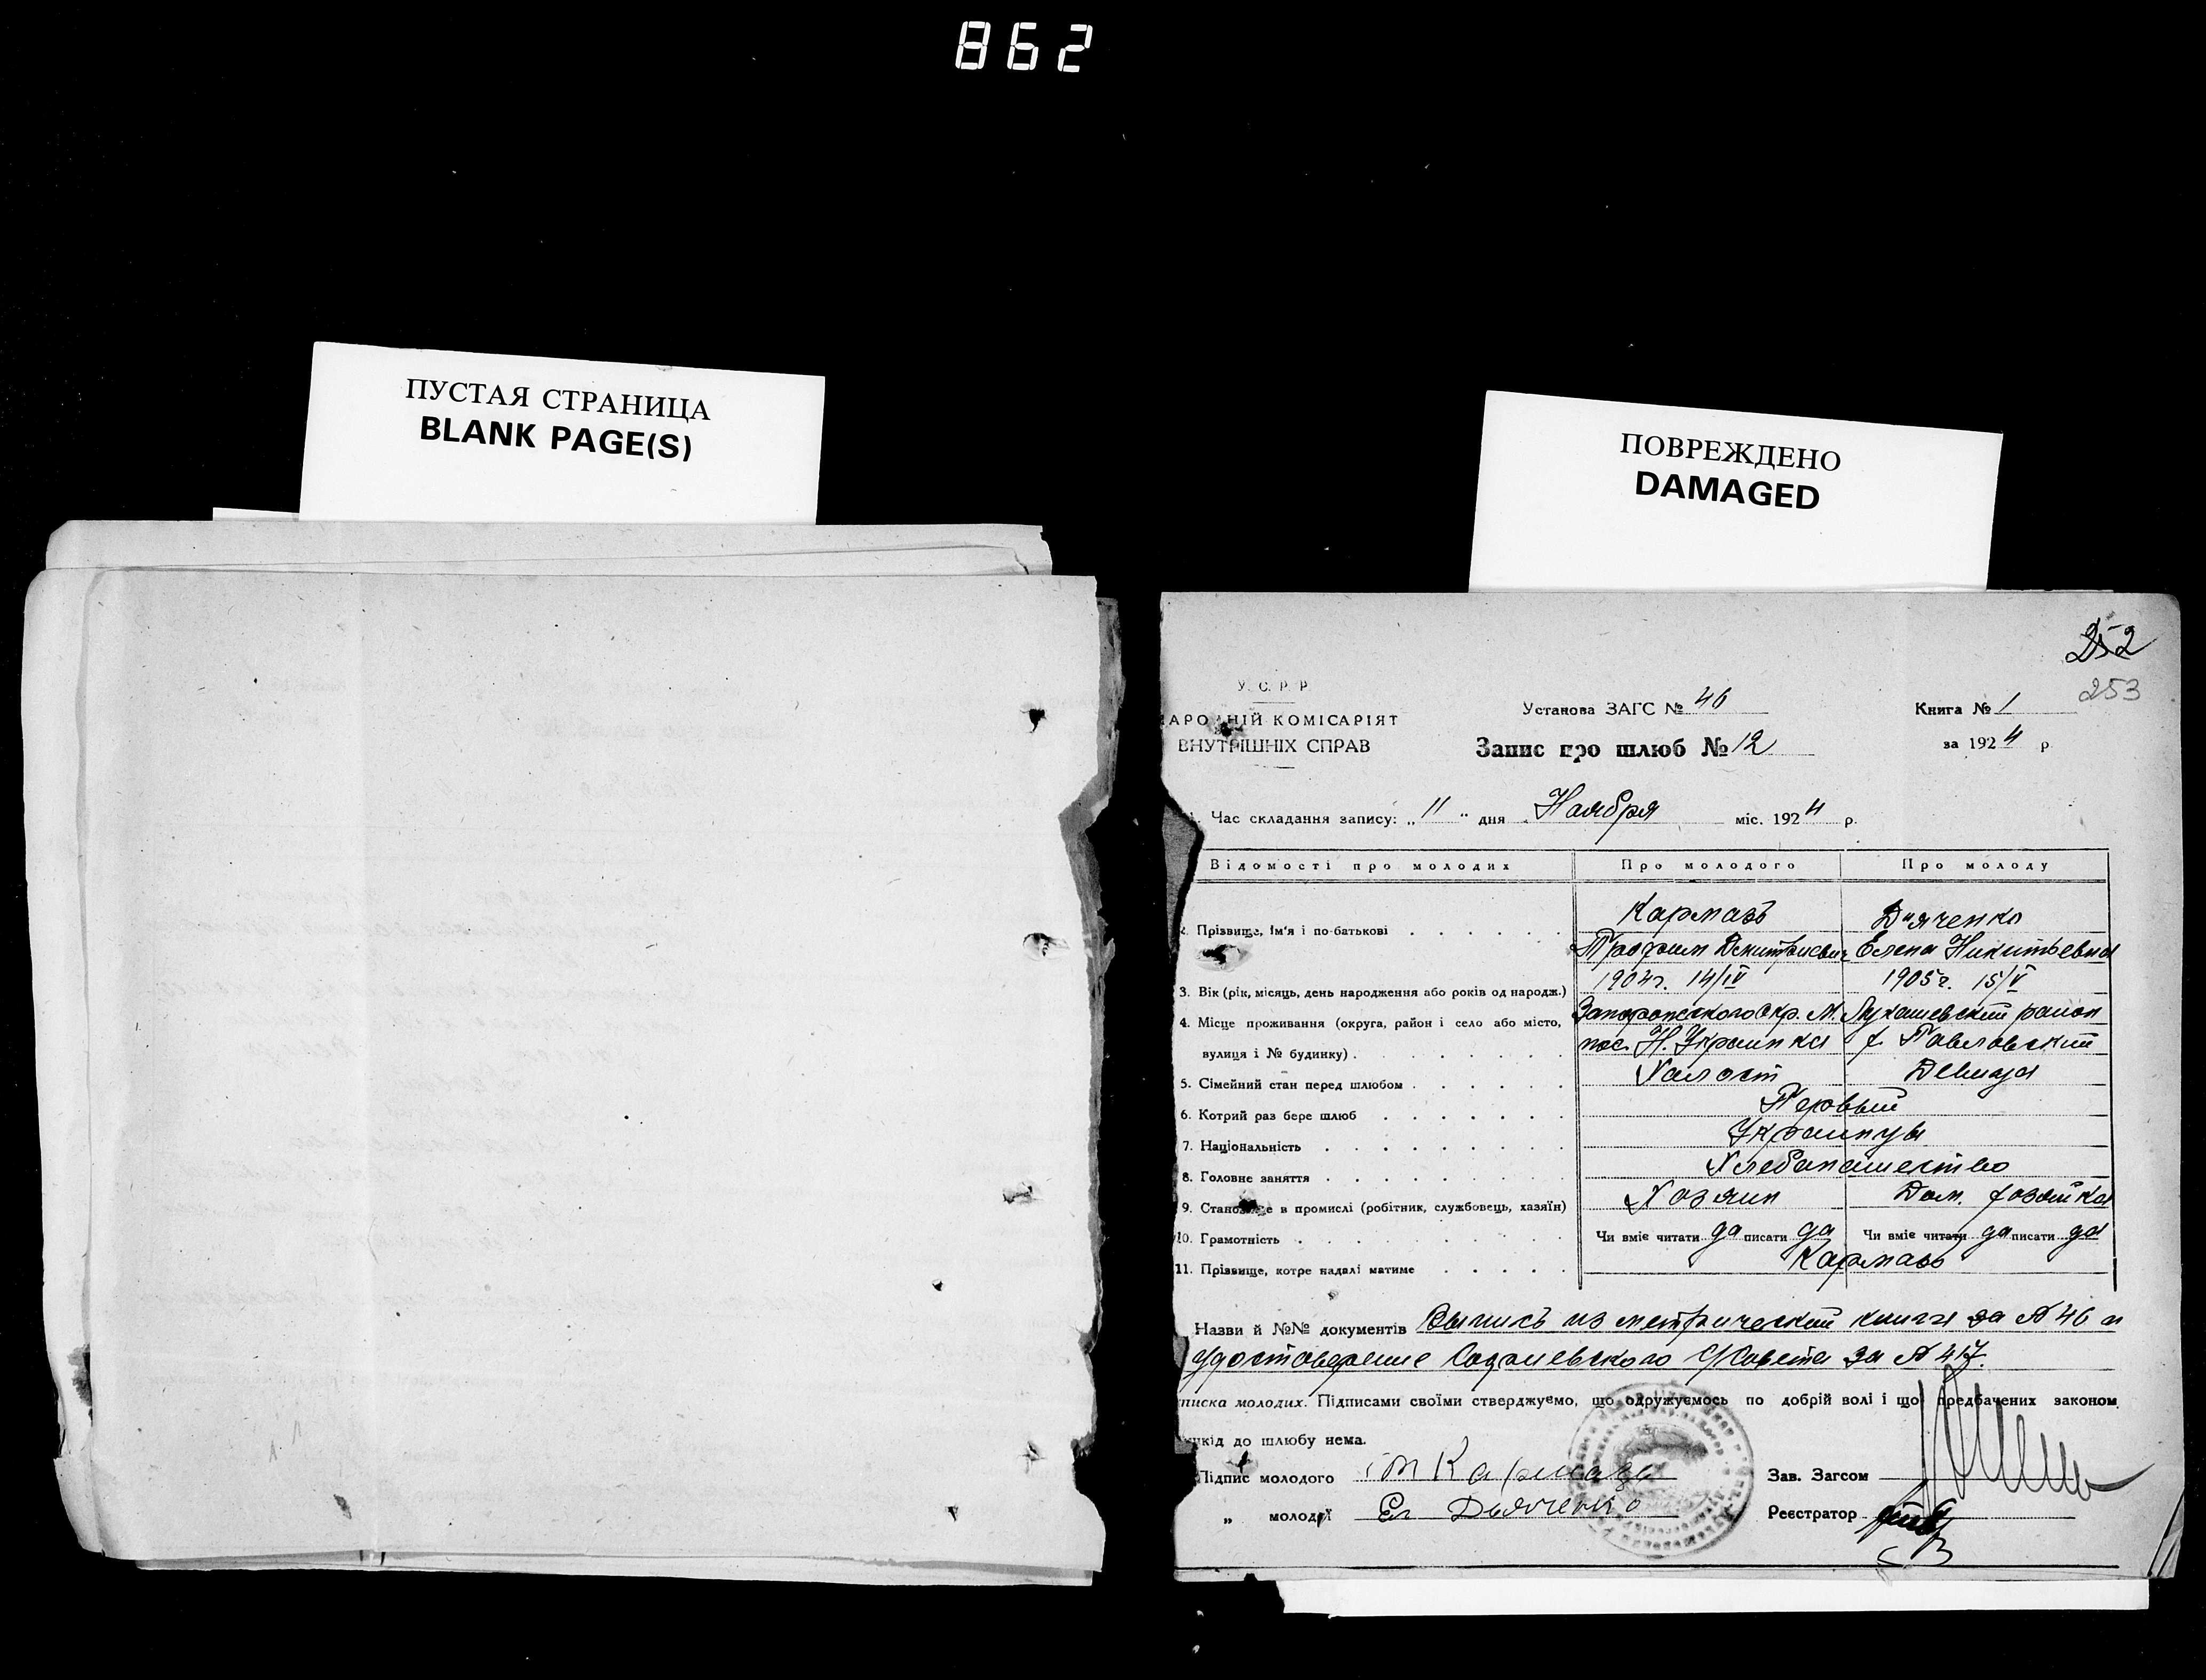 862
ПУСТАЯ СТРАНИЦА
BLANK PAGE(S)
ПОВРЕЖДЕНО
DAMAGED
252
253
У. С. Р. Р.
АРОДНІЙ КОМІСАРІЯТ
ВНУТРІШНІХ СПРАВ
Установа ЗАГС № 46
Книга № 1
Запис про шлюб № 12
за 1924 р.
Час складання запису: „11" дня Ноября міс. 1924 р.
Відомості про молодих Про молодого Про молоду
2. Прізвище, ім'я і по-батькові Кармазь Дьяченко
Трофим Дмитриевич Елена Никитьевна
3. Вік (рік, місяць, день народження або років од народж.) 1904г. 14/IV 1905г. 15/V
4. Місце проживання (округа, район і село або місто, Запорожского Окр. М. Лукашевский район
вулиця і № будинку) пос. Н. Украинка х. Павловский
5. Сімейний стан перед шлюбом Халост Девица
6. Котрий раз бере шлюб Первый
7. Національність Украинцы
8. Головне заняття Хлебапашество
9. Становище в промислі (робітник, службовець, хазяїн) Хозяин Дом. хозяйка
10. Грамотність Чи вміє читати да писати да Чи вміє читати да писати да
11. Прізвище, котре надалі матиме Кармазь
Назви й №№ документів Выпись из метрической книги за № 46 и
удостоверение С/Совета за № 417.
писка молодих. Підписами своїми стверджуємо, що одружуємось по добрій волі і що предбачених законом
шкід до шлюбу нема.
Підпис молодого Кармазь
Зав. Загсом
„ молодої Ел Дьяченко
Реєстратор